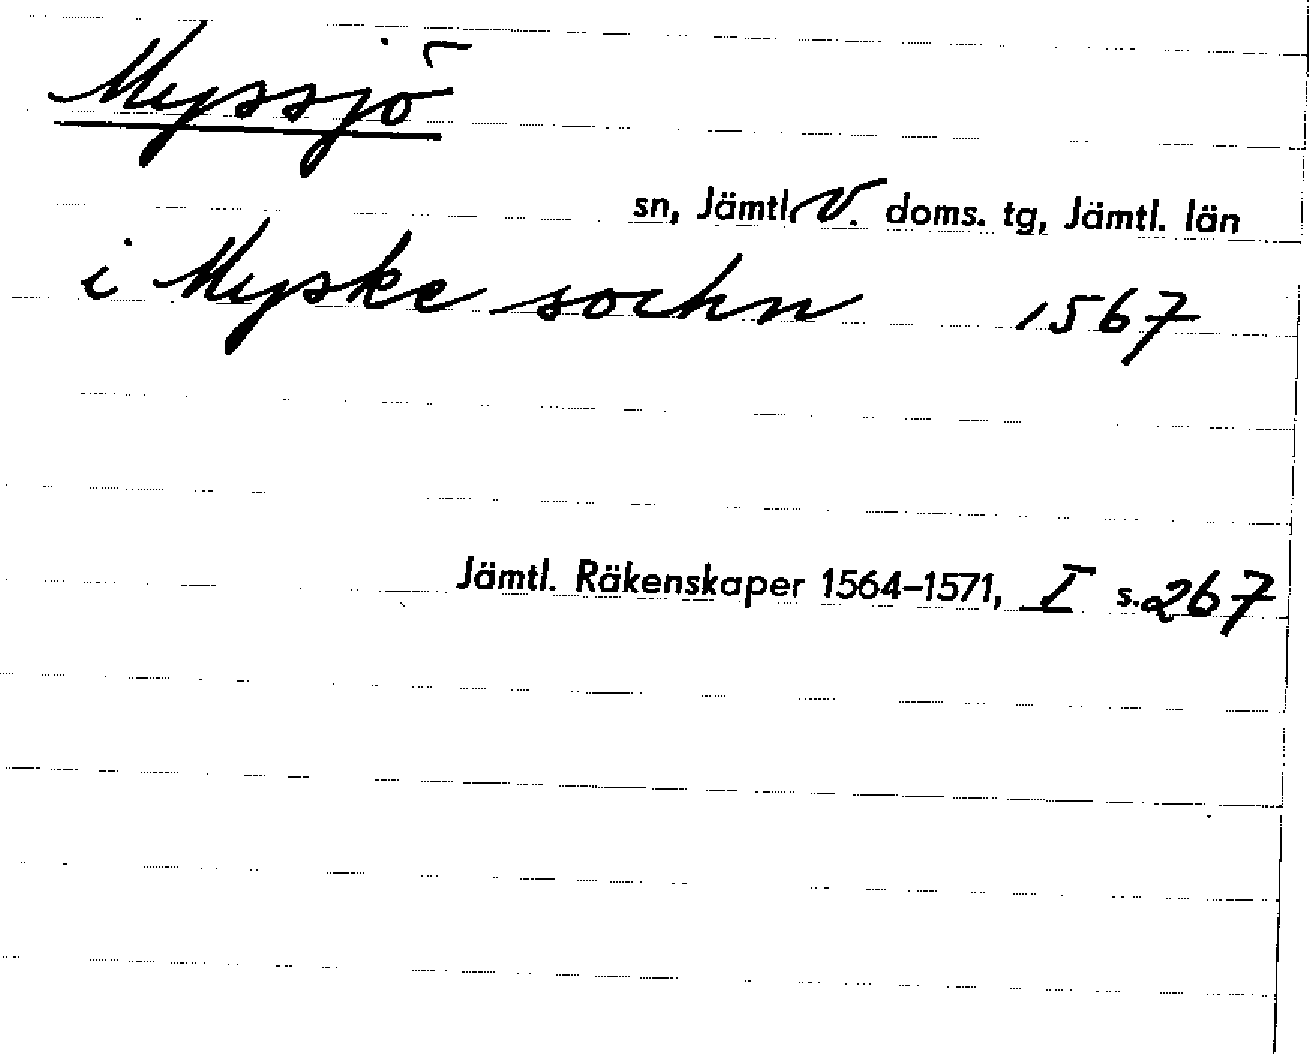 Myssjö
sn, Jämtl. V. doms. tg, Jämtl. län
i Myske sochn 1567
Jämtl. Räkenskaper 1564–1571, I s. 267